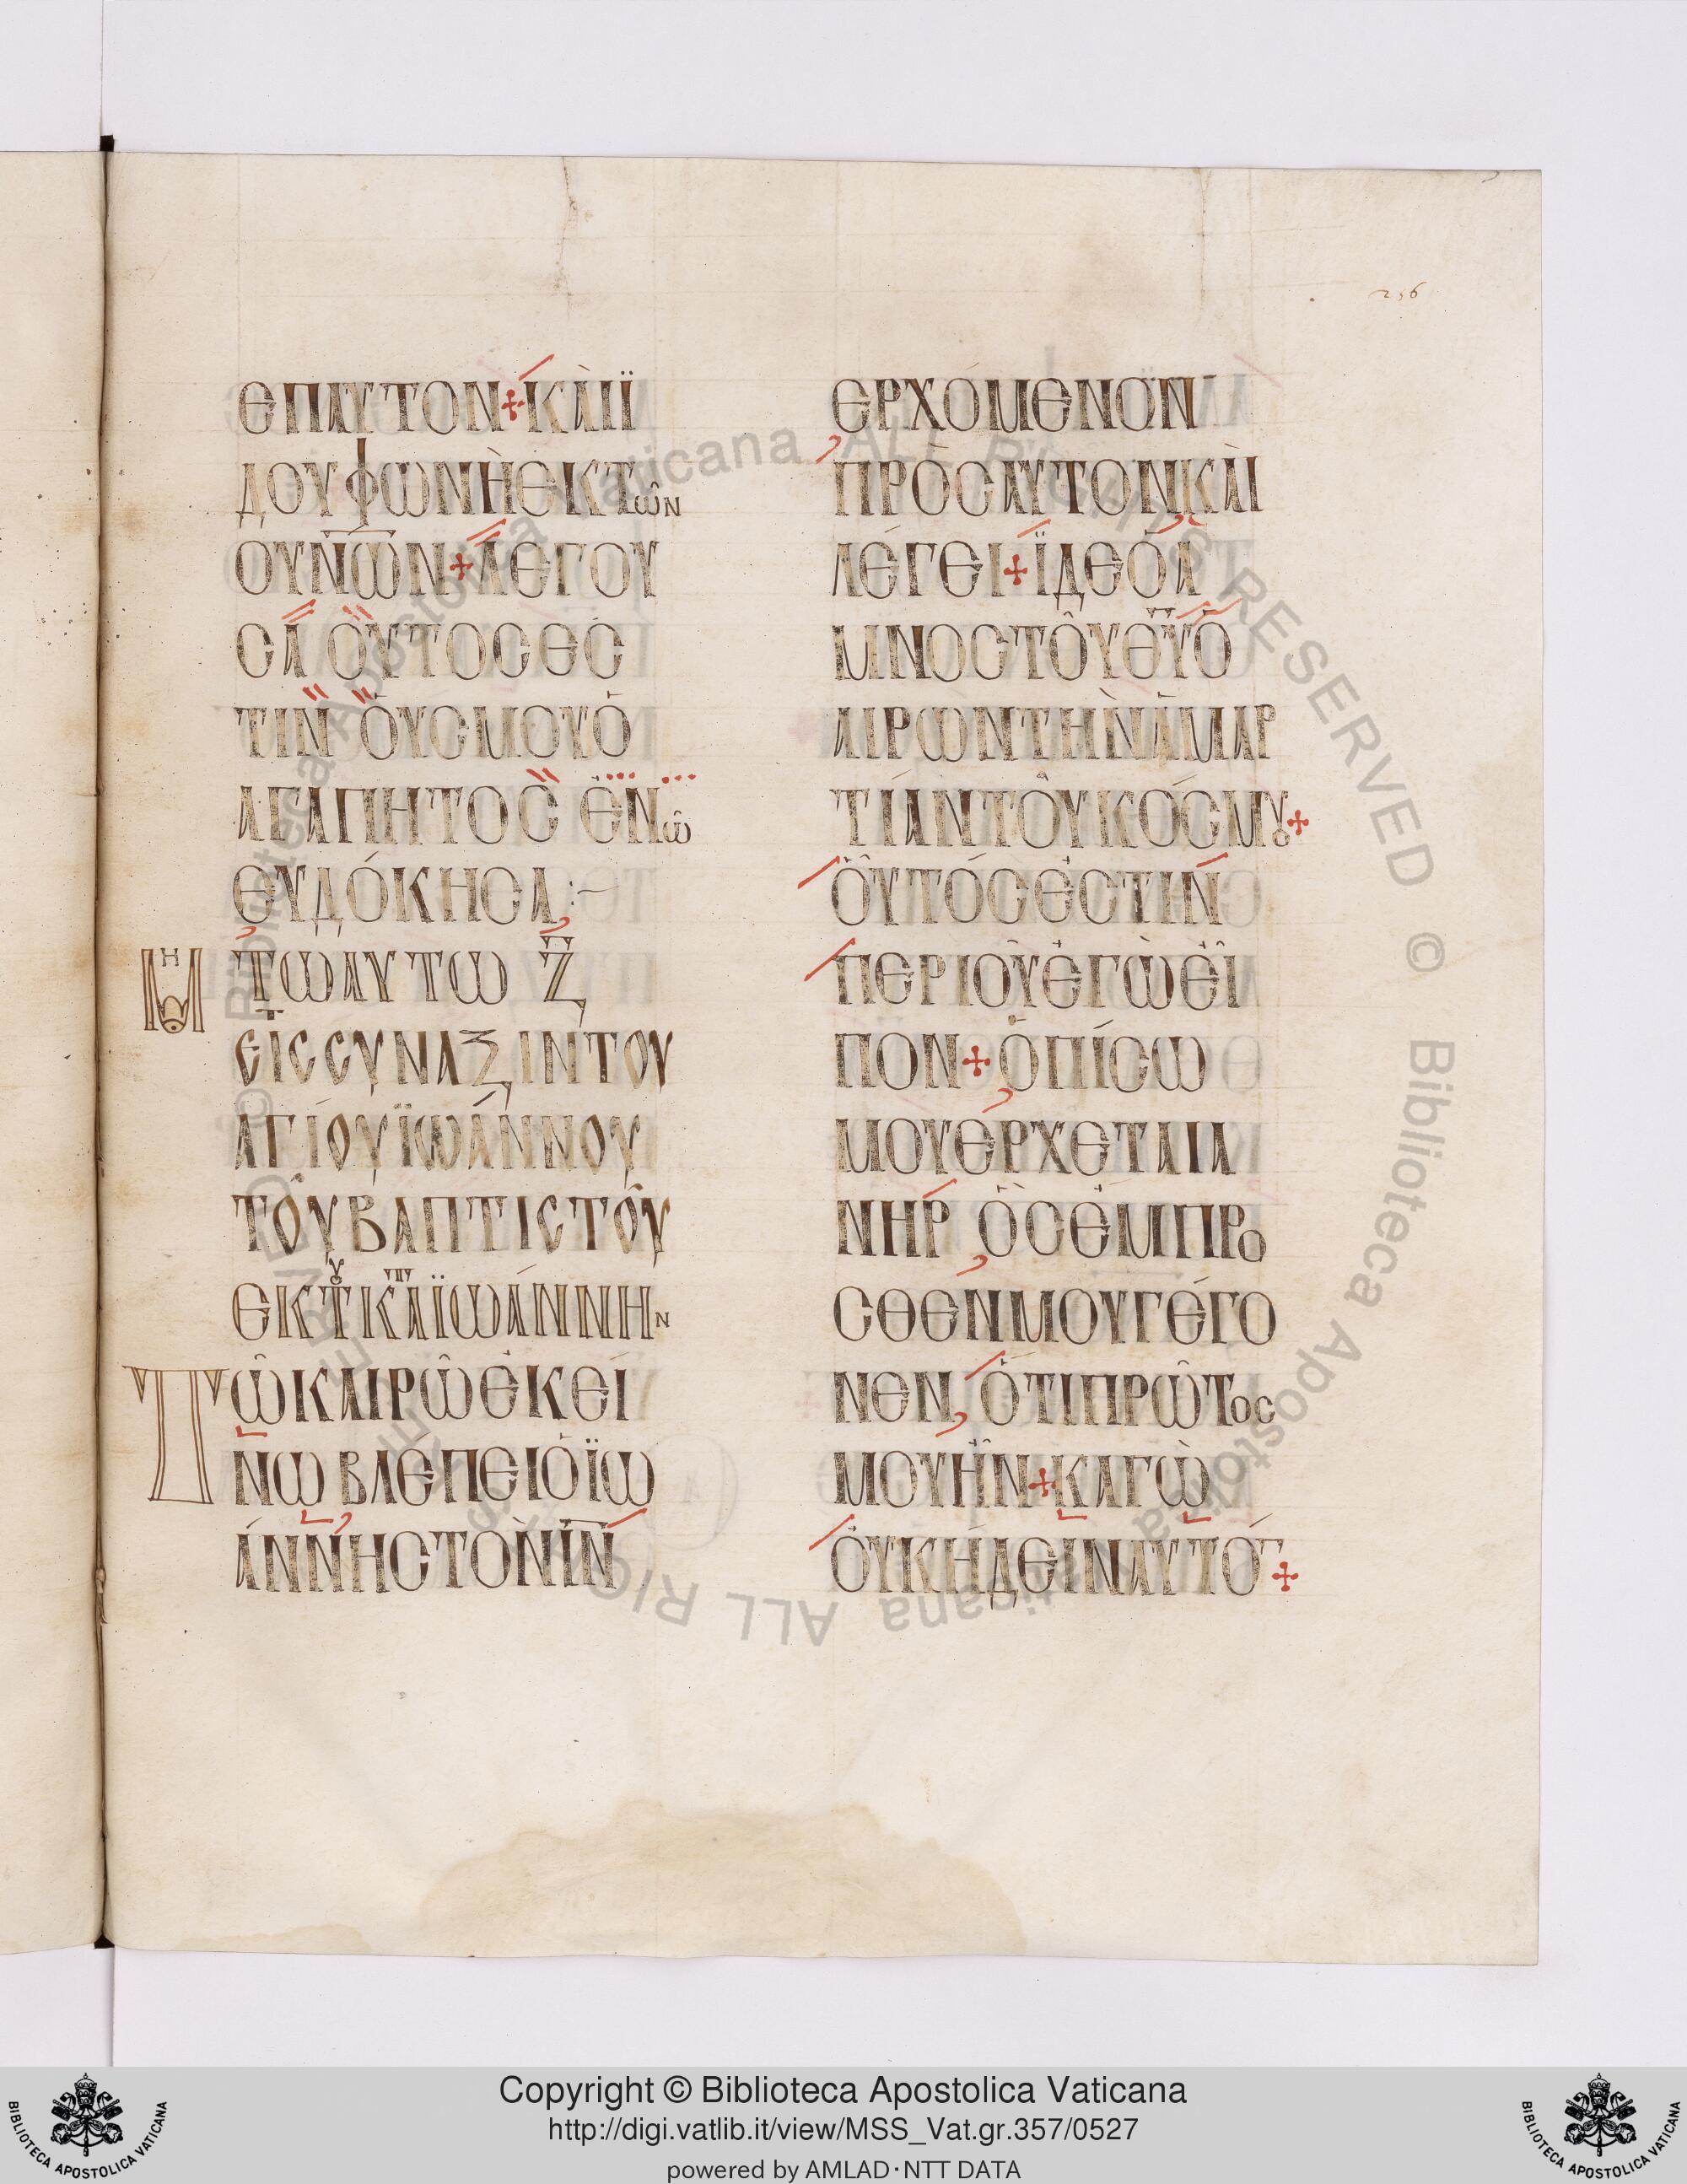 256
ΕΠΑΥΤΟΝ+ΚᾺΙΪ
ΔΟΥΦΩΝῊΕΚΤῶΝ
ΟΥΝ̅Ω̅Ν+ΛΕΓΟΥ
ΣΑ ΟΥΤΟϹΕϹ
ΤΙΝ ὉΥϹΜΟΥὉ
ΑΓΑΠΗΤΟϹ ἘΝῶ
ΕΥΔΌΚΗϹΑ:~
ΜΗ ΤΩΑΥΤΩ Ζ̅
ΕἸϹϹΥΝΑΞΙΝΤΟΥ
ΑΓΊΟΥΪΩΆΝΝΟΥ
ΤΟῦΒΑΠΤΙϹΤΟῦ
ΕΚΤΟΥΚΑΤΑΪΩΆΝΝΗΝ
ΤῶΚΑΙΡῶἘΚΕΊ
ΝΩ ΒΛΕΠΕΙὉΪΩ
ΆΝΝΗϹΤῸΝΙ̅Ν̅
ΕΡΧΌΜΕΝΟΝ
ΠΡῸϹΑΥΤΟΝΚᾺΙ
ΛΈΓΕΙ+ΪΔΕὉΑ
ΜΝΟϹΤΟῦΘ̅Υ̅Ὁ
ΑΙΡΩΝΤῊΝἉΜΑΡ
ΤΊΑΝΤΟῦΚΌϹΜΟΥ+
ΟὟΤΌϹἘϹΤΙΝ
ΠΕΡΙΟὟἘΓῺΕἾ
ΠΟΝ+ὈΠΊϹΩ
ΜΟΥἘΡΧΕΤΑΙΑ
ΝΗΡ ὋϹἘΜΠΡΟ
ϹΘΕΝΜΟΥΓΈΓΟ
ΝΕΝ,ὍΤΙΠΡῶΤΟϹ
ΜΟΥἮΝ+ΚΑΓῺ
ΟὐΚΉΔΕΙΝΑΥΤΌΝ+
Copyright © Biblioteca Apostolica Vaticana
http://digi.vatlib.it/view/MSS_Vat.gr.357/0527
powered by AMLAD·NTT DATA
BIBLIOTECA APOSTOLICA VATICANA
BIBLIOTECA APOSTOLICA VATICANA